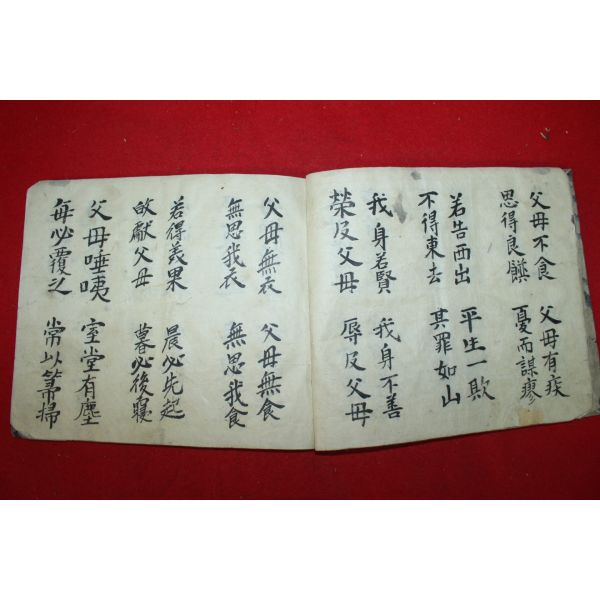 父母不食 父母有疾
思得良饌 憂而謀瘳
若告西出 平生一欺
不得東去 其罪如山
我身若賢 我身不善
榮及父母 辱及父母
父母無衣 父母無食
無思我衣 無思我食
若得美果 晨必先起
敀獻父母 暮必後寢
父母唾咦 室堂有塵
每必覆之 常以箒掃